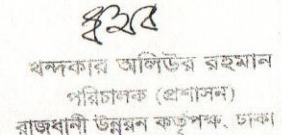 খন্দকার অলিউর রহমান
পরিচালক (প্রশাসন)
রাজধানী উন্নয়ন কর্তৃপক্ষ, ঢাকা